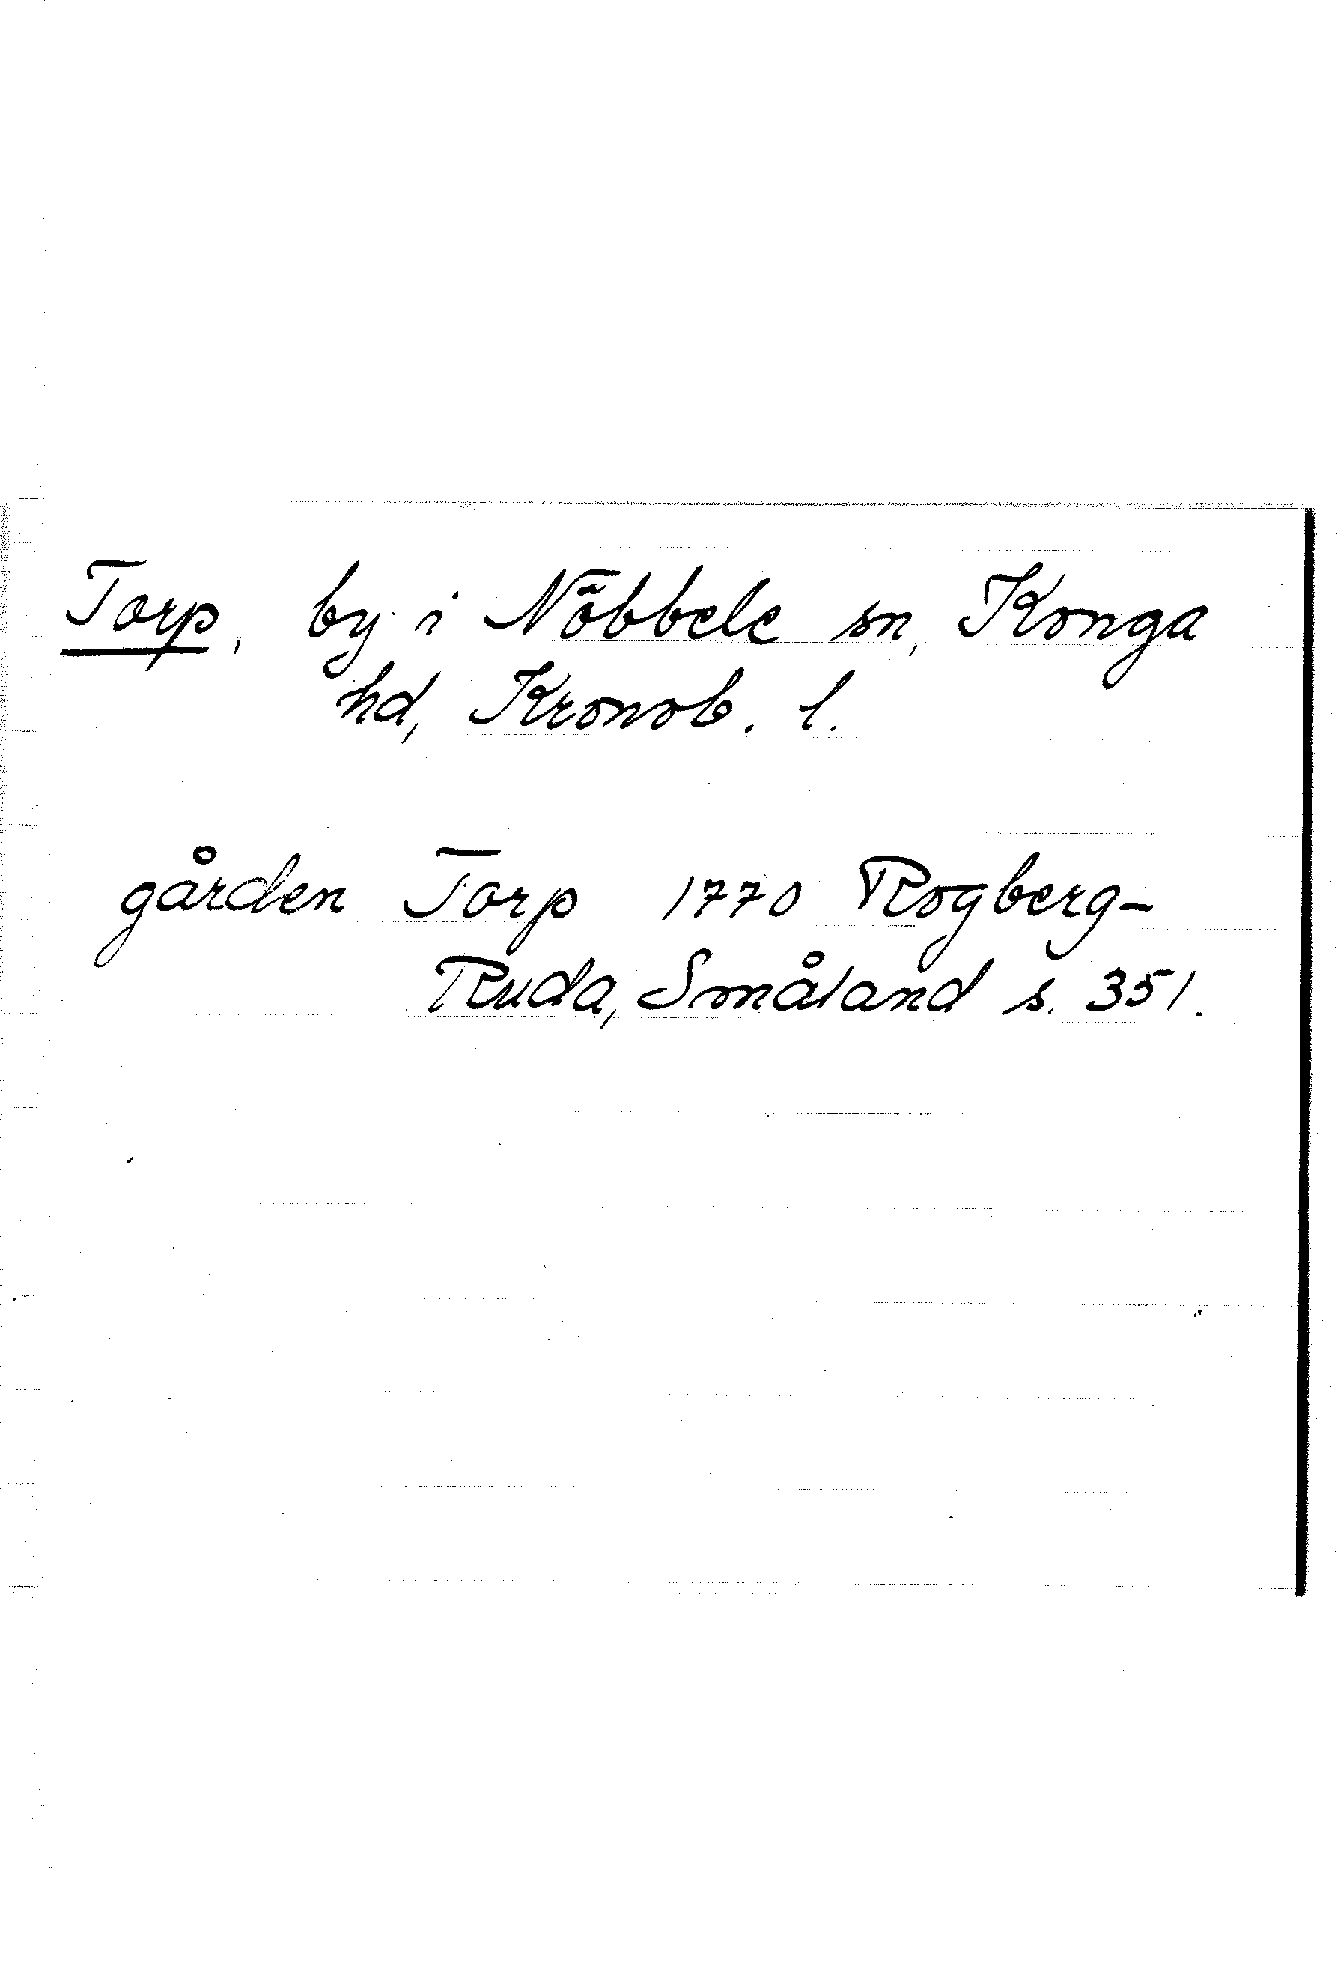 Torp, by i Nöbbele sn, Konga
hd, Kronob. l.
gården Torp 1770 Rogberg-
Ruda, Småland s. 351.